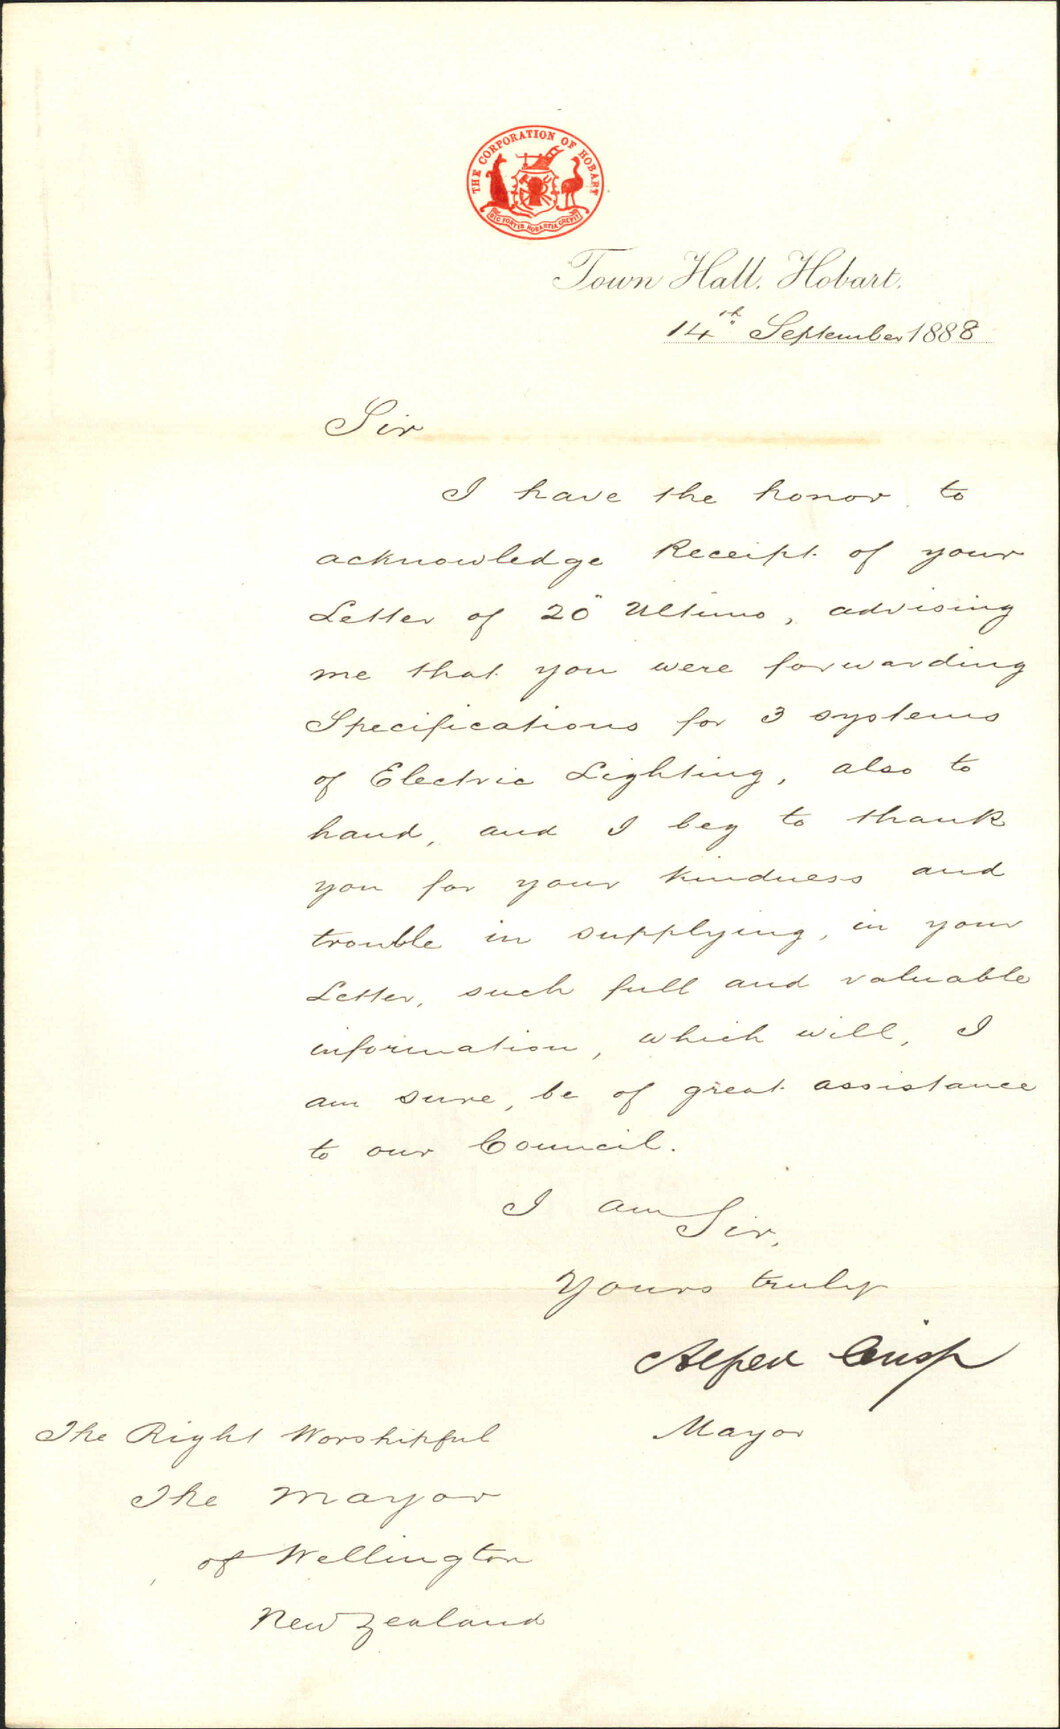 THE CORPORATION OF HOBART
SIC FORTIS HOBARTIA CREVIT
Town Hall, Hobart.
14th September 1888
Sir
I have the honor to
acknowledge Receipt of your
Letter of 20" Ultimo, advising
me that you were forwarding
Specifications for 3 systems
of Electric Lighting, also to
hand, and I beg to thank
you for your kindness and
trouble in supplying, in your
Letter, such full and valuable
information, which will, I
am sure, be of great assistance
to our Council.
I am Sir,
Yours truly
Alfred Crisp
Mayor
The Right Worshipful
The Mayor
of Wellington
New Zealand